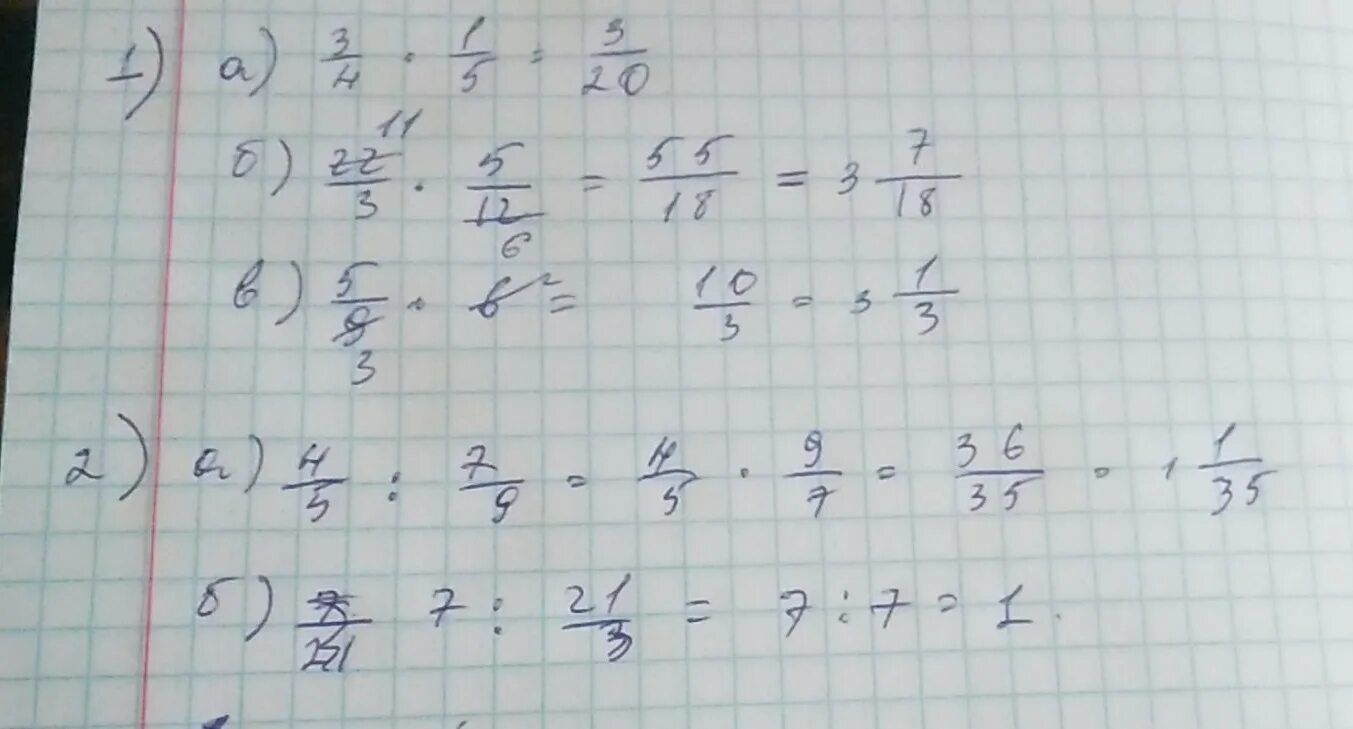 1) а) 3/4 · 1/5 = 3/20
б) 22/3 11 · 5/12 6 = 55/18 = 3 7/18
в) 5/9 3 · 6 2 = 10/3 = 3 1/3
2) а) 4/5 : 7/9 = 4/5 · 9/7 = 36/35 = 1 1/35
б) 7 : 21/3 = 7 : 7 = 1.